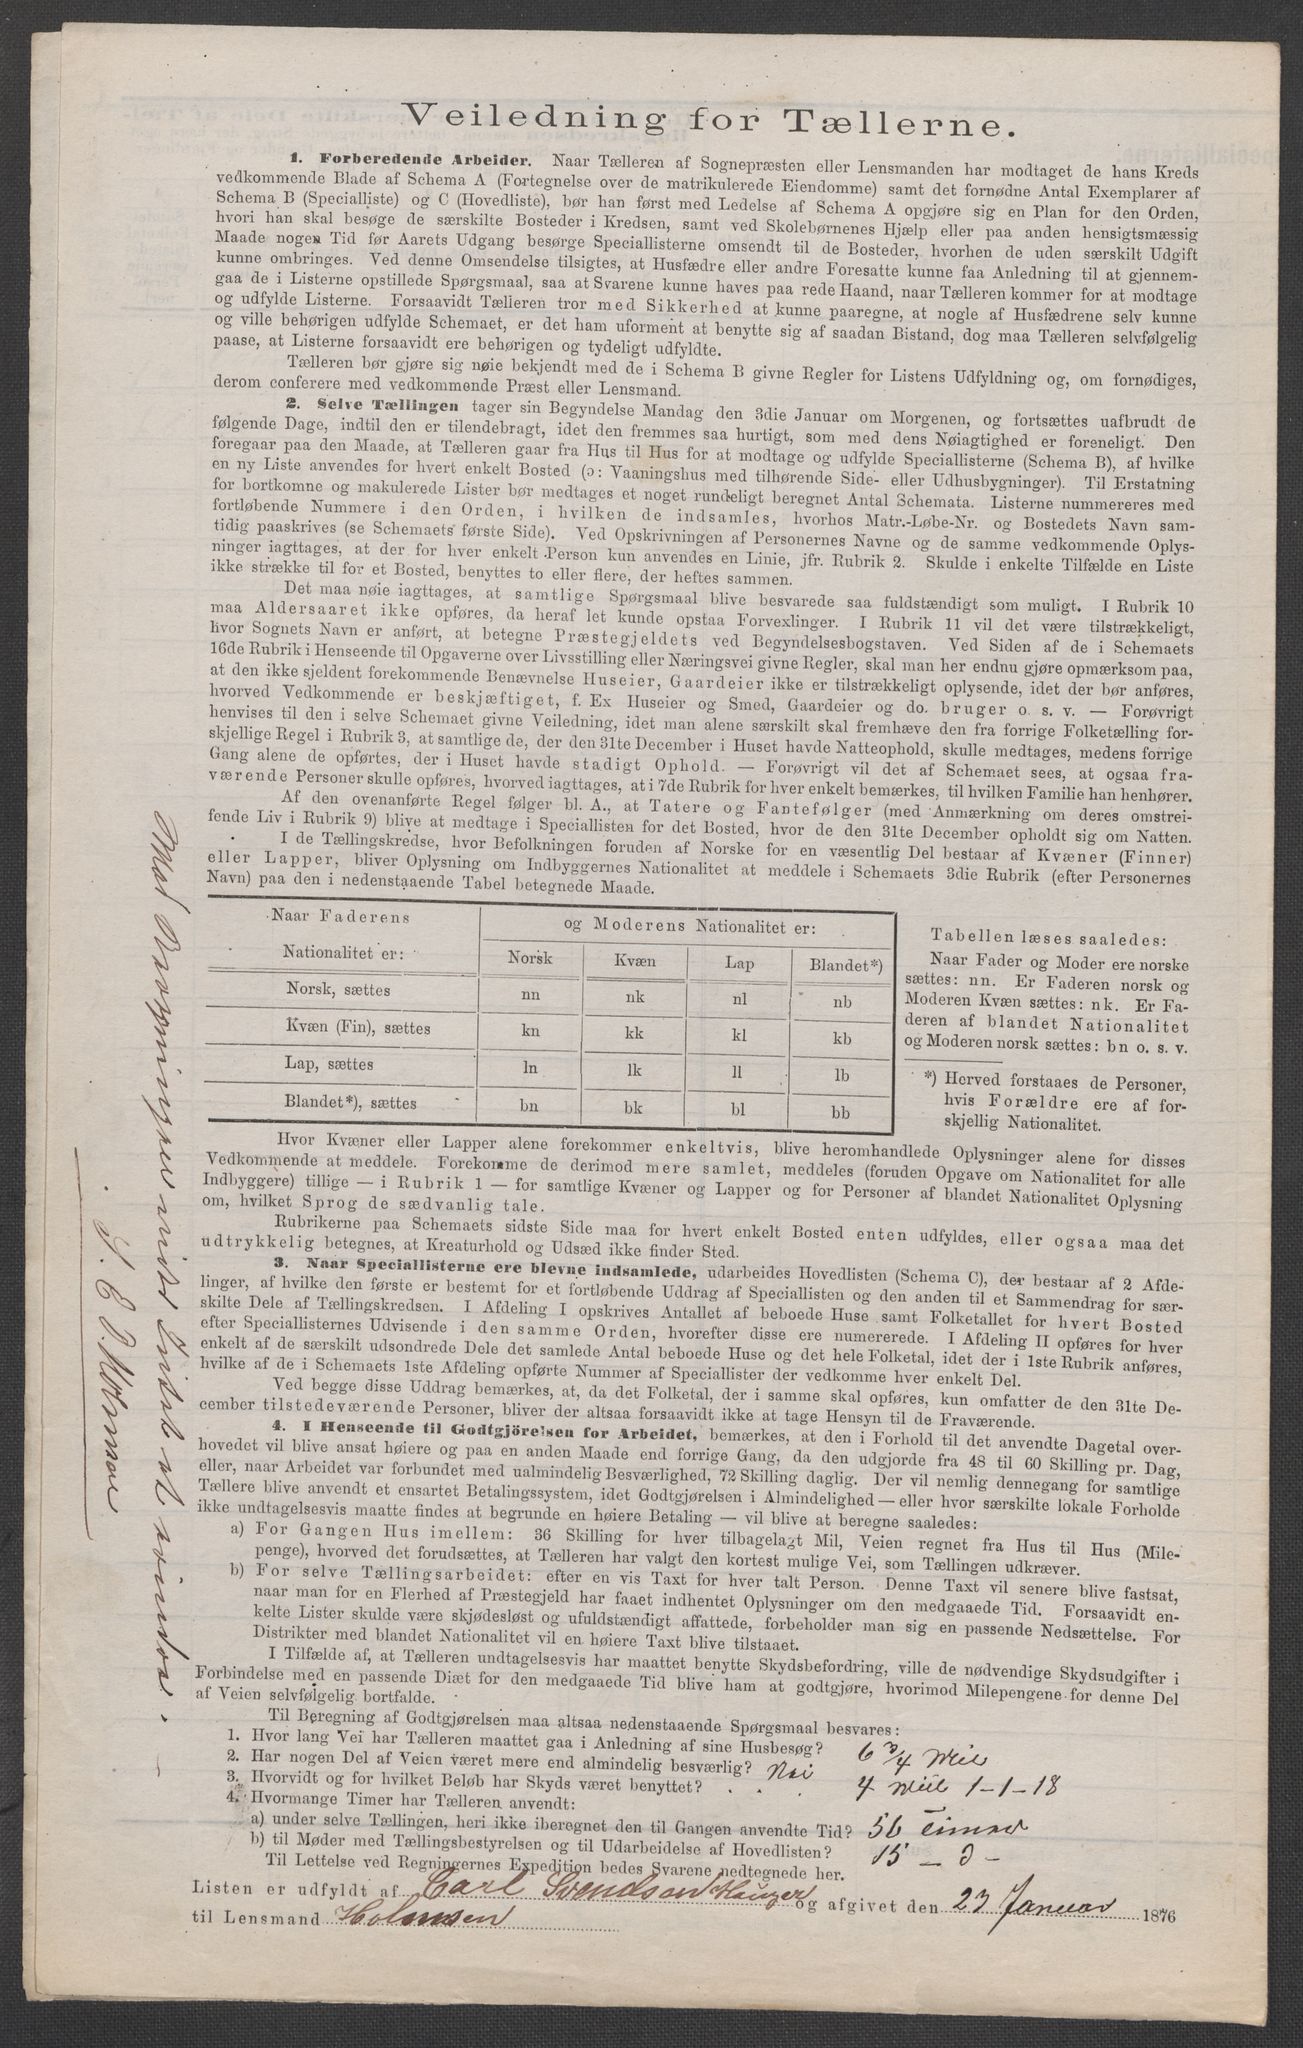 Veiledning for Tællerne.
1. Forberedende Arbeider. Naar Tælleren af Sognepræsten eller Lensmanden har modtaget de hans Kreds
vedkommende Blade af Schema A (Fortegnelse over de matrikulerede Eiendomme) samt det fornødne Antal Exemplarer af
Schema B (Specialliste) og C (Hovedliste), bør han først med Ledelse af Schema A opgjøre sig en Plan for den Orden,
hvori han skal besøge de særskilte Bosteder i Kredsen, samt ved Skolebørnenes Hjælp eller paa anden hensigtsmæssig
Maade nogen Tid før Aarets Udgang besørge Speciallisterne omsendt til de Bosteder, hvorhen de uden særskilt Udgift
kunne ombringes. Ved denne Omsendelse tilsigtes, at Husfædre eller andre Foresatte kunne faa Anledning til at gjennem-
gaa de i Listerne opstillede Spørgsmaal, saa at Svarene kunne haves paa rede Haand, naar Tælleren kommer for at modtage
og udfylde Listerne. Forsaavidt Tælleren tror med Sikkerhed at kunne paaregne, at nogle af Husfædrene selv kunne
og ville behørigen udfylde Schemaet, er det ham uforment at benytte sig af saadan Bistand, dog maa Tælleren selvfølgelig
paase, at Listerne forsaavidt ere behørigen og tydeligt udfyldte.
Tælleren bør gjøre sig nøie bekjendt med de i Schema B givne Regler for Listens Udfyldning og, om fornødiges,
derom conferere med vedkommende Præst eller Lensmand.
2. Selve Tællingen tager sin Begyndelse Mandag den 3die Januar om Morgenen, og fortsættes uafbrudt de
følgende Dage, indtil den er tilendebragt, idet den fremmes saa hurtigt, som med dens Nøiagtighed er foreneligt. Den
foregaar paa den Maade, at Tælleren gaar fra Hus til Hus for at modtage og udfylde Speciallisterne (Schema B), af hvilke
en ny Liste anvendes for hvert enkelt Bosted (ɔ: Vaaningshus med tilhørende Side- eller Udhusbygninger). Til Erstatning
for bortkomne og makulerede Lister bør medtages et noget rundeligt beregnet Antal Schemata. Listerne nummereres med
fortløbende Nummere i den Orden, i hvilken de indsamles, hvorhos Matr.-Løbe-Nr. og Bostedets Navn sam-
tidig paaskrives (se Schemaets første Side). Ved Opskrivningen af Personernes Navne og de samme vedkommende Oplys-
ninger iagttages, at der for hver enkelt Person kun anvendes en Linie, jfr. Rubrik 2. Skulde i enkelte Tilfælde en Liste
ikke strække til for et Bosted, benyttes to eller flere, der heftes sammen.
Det maa nøie iagttages, at samtlige Spørgsmaal blive besvarede saa fuldstændigt som muligt. I Rubrik 10
maa Aldersaaret ikke opføres, da heraf let kunde opstaa Forvexlinger. I Rubrik 11 vil det være tilstrækkeligt,
hvor Sognets Navn er anført, at betegne Præstegjeldets ved Begyndelsesbogstaven. Ved Siden af de i Schemaets
16de Rubrik i Henseende til Opgaverne over Livsstilling eller Næringsvei givne Regler, skal man her endnu gjøre opmærksom paa,
at den ikke sjeldent forekommende Benævnelse Huseier, Gaardeier ikke er tilstrækkeligt oplysende, idet der bør anføres,
hvorved Vedkommende er beskjæftiget, f. Ex Huseier og Smed, Gaardeier og do. bruger o. s. v. — Forøvrigt
henvises til den i selve Schemaet givne Veiledning, idet man alene særskilt skal fremhæve den fra forrige Folketælling for-
skjellige Regel i Rubrik 3, at samtlige de, der den 31te December i Huset havde Natteophold, skulle medtages, medens forrige
Gang alene de opførtes, der i Huset havde stadigt Ophold. — Forøvrigt vil det af Schemaet sees, at ogsaa fra-
værende Personer skulle opføres, hvorved iagttages, at i 7de Rubrik for hver enkelt bemærkes, til hvilken Familie han henhører.
Af den ovenanførte Regel følger bl. A., at Tatere og Fantefølger (med Anmærkning om deres omstrei-
fende Liv i Rubrik 9) blive at medtage i Speciallisten for det Bosted, hvor de den 31te December opholdt sig om Natten.
I de Tællingskredse, hvor Befolkningen foruden af Norske for en væsentlig Del bestaar af Kvæner (Finner)
eller Lapper, bliver Oplysning om Indbyggernes Nationalitet at meddele i Schemaets 3die Rubrik (efter Personernes
Navn) paa den i nedenstaaende Tabel betegnede Maade.
Naar Faderens og Moderens Nationalitet er:
Nationalitet er: Norsk Kvæn Lap Blandet*)
Norsk, sættes nn nk nl nb
Kvæn (Fin), sættes kn kk kl kb
Lap, sættes ln lk ll lb
Blandet*), sættes bn bk bl bb
Tabellen læses saaledes:
Naar Fader og Moder ere norske
sættes: nn. Er Faderen norsk og
Moderen Kvæn sættes: nk. Er Fa-
deren af blandet Nationalitet
og Moderen norsk sættes: bn o. s. v.
*) Herved forstaaes de Personer,
hvis Forældre ere af for-
skjellig Nationalitet.
Hvor Kvæner eller Lapper alene forekommer enkeltvis, blive heromhandlede Oplysninger alene for disses
Vedkommende at meddele. Forekomme de derimod mere samlet, meddeles (foruden Opgave om Nationalitet for alle
Indbyggere) tillige — i Rubrik 1 — for samtlige Kvæner og Lapper og for Personer af blandet Nationalitet Oplysning
om, hvilket Sprog de sædvanlig tale.
Rubrikerne paa Schemaets sidste Side maa for hvert enkelt Bosted enten udfyldes, eller ogsaa maa det
udtrykkelig betegnes, at Kreaturhold og Udsæd ikke finder Sted.
3. Naar Speciallisterne ere blevne indsamlede, udarbeides Hovedlisten (Schema C), der bestaar af 2 Afde-
linger, af hvilke den første er bestemt for et fortløbende Uddrag af Speciallisten og den anden til et Sammendrag for sær-
skilte Dele af Tællingskredsen. I Afdeling I opskrives Antallet af beboede Huse samt Folketallet for hvert Bosted
efter Speciallisternes Udvisende i den samme Orden, hvorefter disse ere numererede. I Afdeling II opføres for hver
enkelt af de særskilt udsondrede Dele det samlede Antal beboede Huse og det hele Folketal, idet der i 1ste Rubrik anføres,
hvilke af de i Schemaets 1ste Afdeling opførte Nummer af Speciallister der vedkomme hver enkelt Del.
Ved begge disse Uddrag bemærkes, at, da det Folketal, der i samme skal opføres, kun omfatter de den 31te De-
cember tilstedeværende Personer, bliver der altsaa forsaavidt ikke at tage Hensyn til de Fraværende.
4. I Henseende til Godtgjörelsen for Arbeidet, bemærkes, at den i Forhold til det anvendte Dagetal over-
hovedet vil blive ansat høiere og paa en anden Maade end forrige Gang, da den udgjorde fra 48 til 60 Skilling pr. Dag,
eller, naar Arbeidet var forbundet med ualmindelig Besværlighed, 72 Skilling daglig. Der vil nemlig dennegang for samtlige
Tællere blive anvendt et ensartet Betalingssystem, idet Godtgjørelsen i Almindelighed — eller hvor særskilte lokale Forholde
ikke undtagelsesvis maatte findes at begrunde en høiere Betaling — vil blive at beregne saaledes:
a) For Gangen Hus imellem: 36 Skilling for hver tilbagelagt Mil, Veien regnet fra Hus til Hus (Mile-
penge), hvorved det forudsættes, at Tælleren har valgt den kortest mulige Vei, som Tællingen udkræver.
b) For selve Tællingsarbeidet: efter en vis Taxt for hver talt Person. Denne Taxt vil senere blive fastsat,
naar man for en Flerhed af Præstegjeld har faaet indhentet Oplysninger om den medgaaede Tid. Forsaavidt en-
kelte Lister skulde være skjødesløst og ufuldstændigt affattede, forbeholder man sig en passende Nedsættelse. For
Distrikter med blandet Nationalitet vil en høiere Taxt blive tilstaaet.
I Tilfælde af, at Tælleren undtagelsesvis har maattet benytte Skydsbefordring, ville de nødvendige Skydsudgifter i
Forbindelse med en passende Diæt for den medgaaede Tid blive ham at godtgjøre, hvorimod Milepengene for denne Del
af Veien selvfølgelig bortfalde.
Til Beregning af Godtgjørelsen maa altsaa nedenstaaende Spørgsmaal besvares:
1. Hvor lang Vei har Tælleren maattet gaa i Anledning af sine Husbesøg? 6 3/4 Mil
2. Har nogen Del af Veien været mere end almindelig besværlig? Nei
3. Hvorvidt og for hvilket Beløb har Skyds været benyttet? 4 Miil 1-1-18
4. Hvormange Timer har Tælleren anvendt:
a) under selve Tællingen, heri ikke iberegnet den til Gangen anvendte Tid? 56 Timer
b) til Møder med Tællingsbestyrelsen og til Udarbeidelse af Hovedlisten? 15 - d -
Til Lettelse ved Regningernes Expedition bedes Svarene nedtegnede her.
Listen er udfyldt af Carl Svendsen og afgivet den 23 Januar 1876
til Lensmand Holmsen